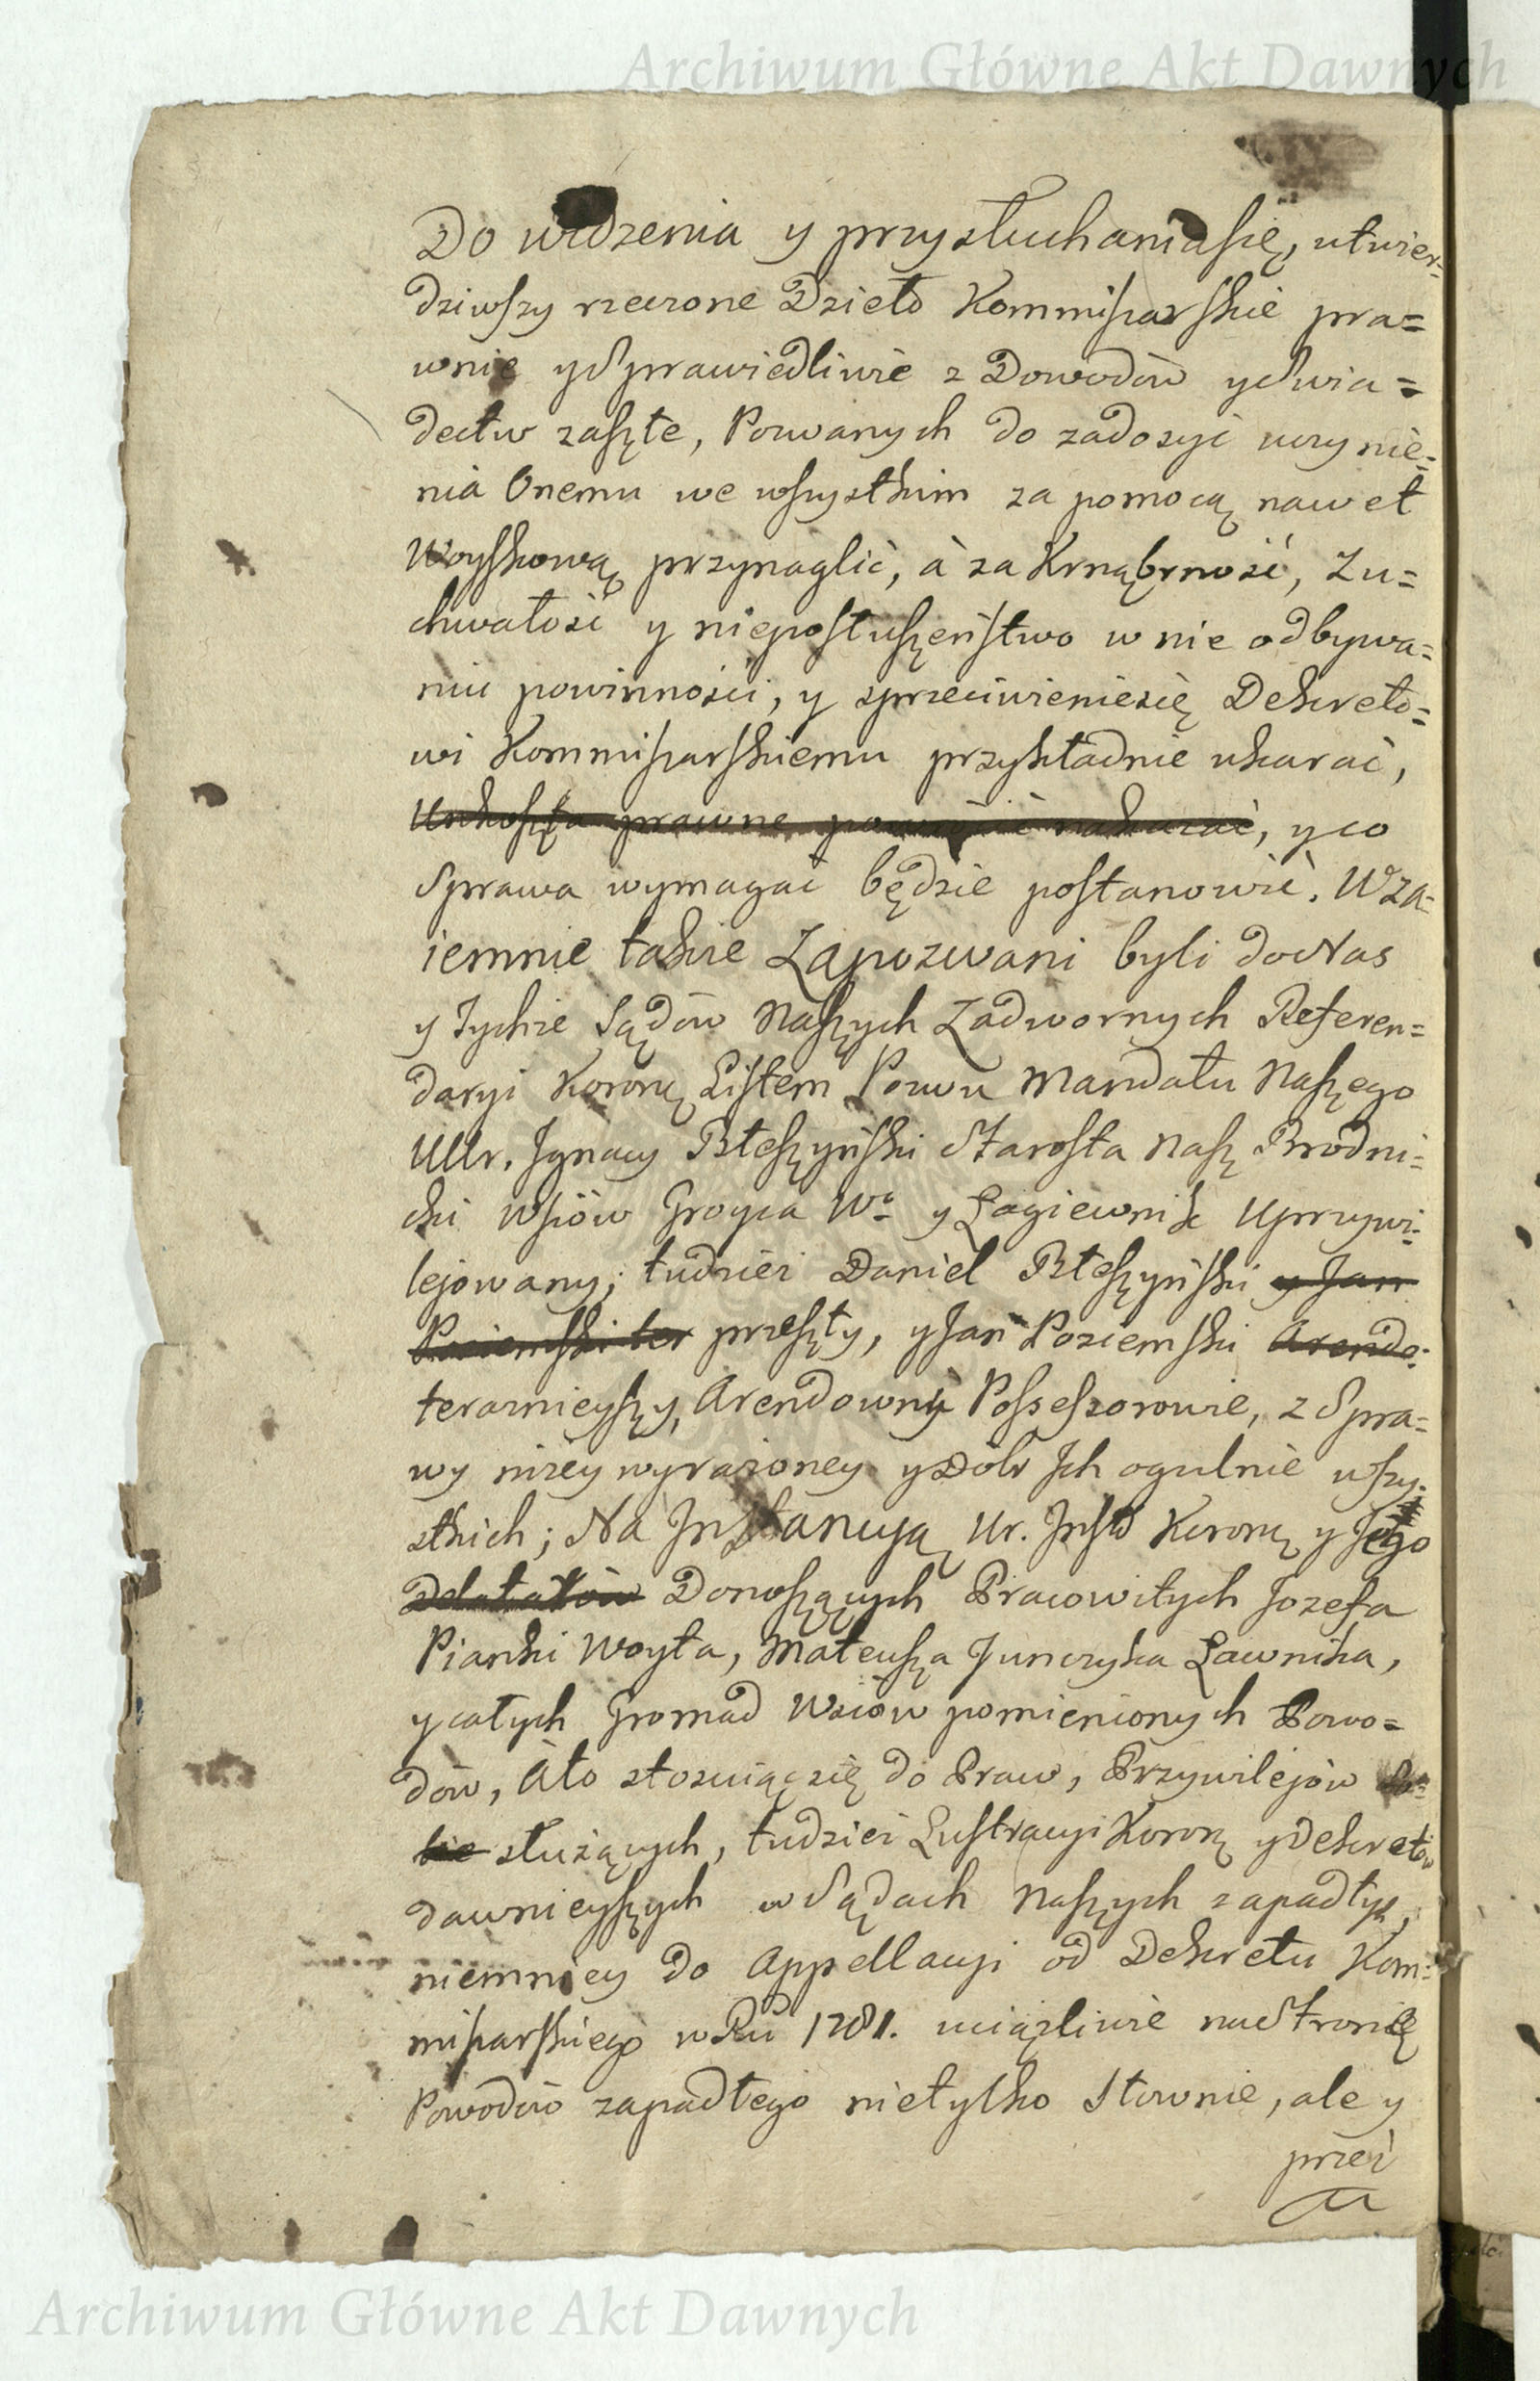 Archiwum Główne Akt Dawnych
Do widzenia y przysłuchania się, utwier=
dziwszy rzeczone Dzieło Kommissarskie pra=
wnie y Sprawiedliwie z Dowodów y Swia=
dectw zaszłe, Pozwanych do zadosyć uczynie=
nia Onemu we wszystkim za pomocą nawet
Woyskową przynaglić, à za Krnąbrność, Zu=
chwałość y nieposłuszeństwo w nie odbywa=
niu powinności, y sprzeciwieniesię Dekreto=
wi Kommissarskiemu przykładnie ukarać,
Unkoszta prawne powrócić nakazać, y co
Sprawa wymagać będzie postanowić. Wza=
iemnie także Zapozwani byli do Nas
y Tychże Sądów Naszych Zadwornych Referen=
daryi Koronę Listem Pozwu Mandatu Naszego
Ur. Ignacy Błeszyński Starosta Nasz Brodni=
cki Wsiów Groyca Wo y Łagiewnik Uprzywi=
lejowany, tudzież Daniel Błeszyński y Jan
Poziemski ter przeszły, y Jan Poziemski Arendo=
terazniejszy, Arendowny Possessorowie, z Spra=
wy niżey wyrażoney y Dóbr Ich ogulnie wszy=
stkich; Na Instancyą Ur. Insta Koronę y Jego
Delatorów Donoszących Pracowitych Jozefa
Pianki Woyta, Mateusza Junczyka Ławnika,
y całych Gromad Wsiów pomienionych Powo=
dów, Ato stosuiącsię do Praw, Przywilejów So=
bie służących, tudzież Lustracyi Koroną y Dekretów
dawnieyszych w Sądach Naszych zapadłych,
niemniey do Appellacyi od Dekretu Kom=
missarskiego w Ru 1781. uciążliwie na Stronię
Powodów zapadłego nietylko Słownie, ale y
przez
Archiwum Główne Akt Dawnych